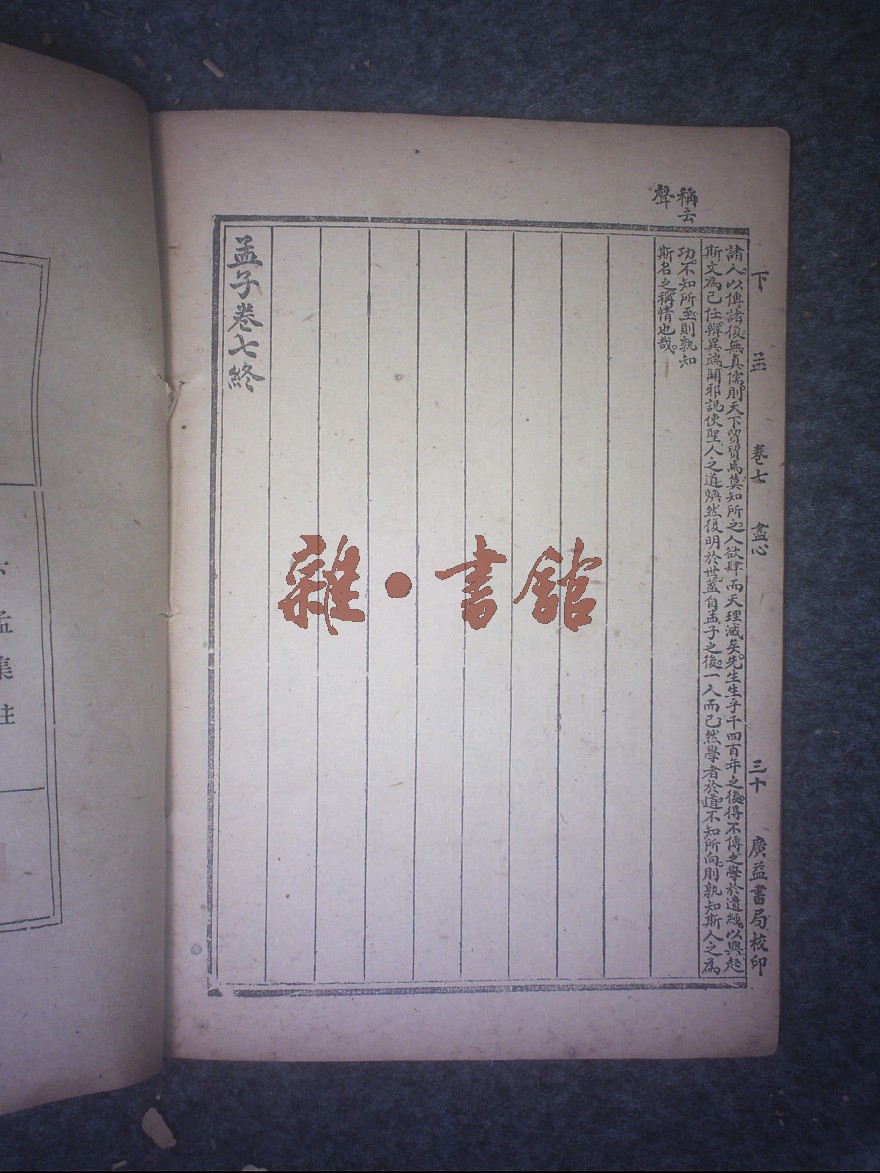 下孟 卷七 盡心 三十 廣益書局校印
稱去
聲
諸人以傳諸後無真儒則天下貿貿焉莫知所之人欲肆而天理滅矣先生生乎千四百年之後得不傳之學於遺經以興起
斯文爲己任辨異端闢邪說使聖人之道煥然復明於世蓋自孟子之後一人而已然學者於道不知所向則孰知斯人之爲
功不知所至則孰知
斯名之稱情也哉
孟子卷七終
雜·書館
孟集註